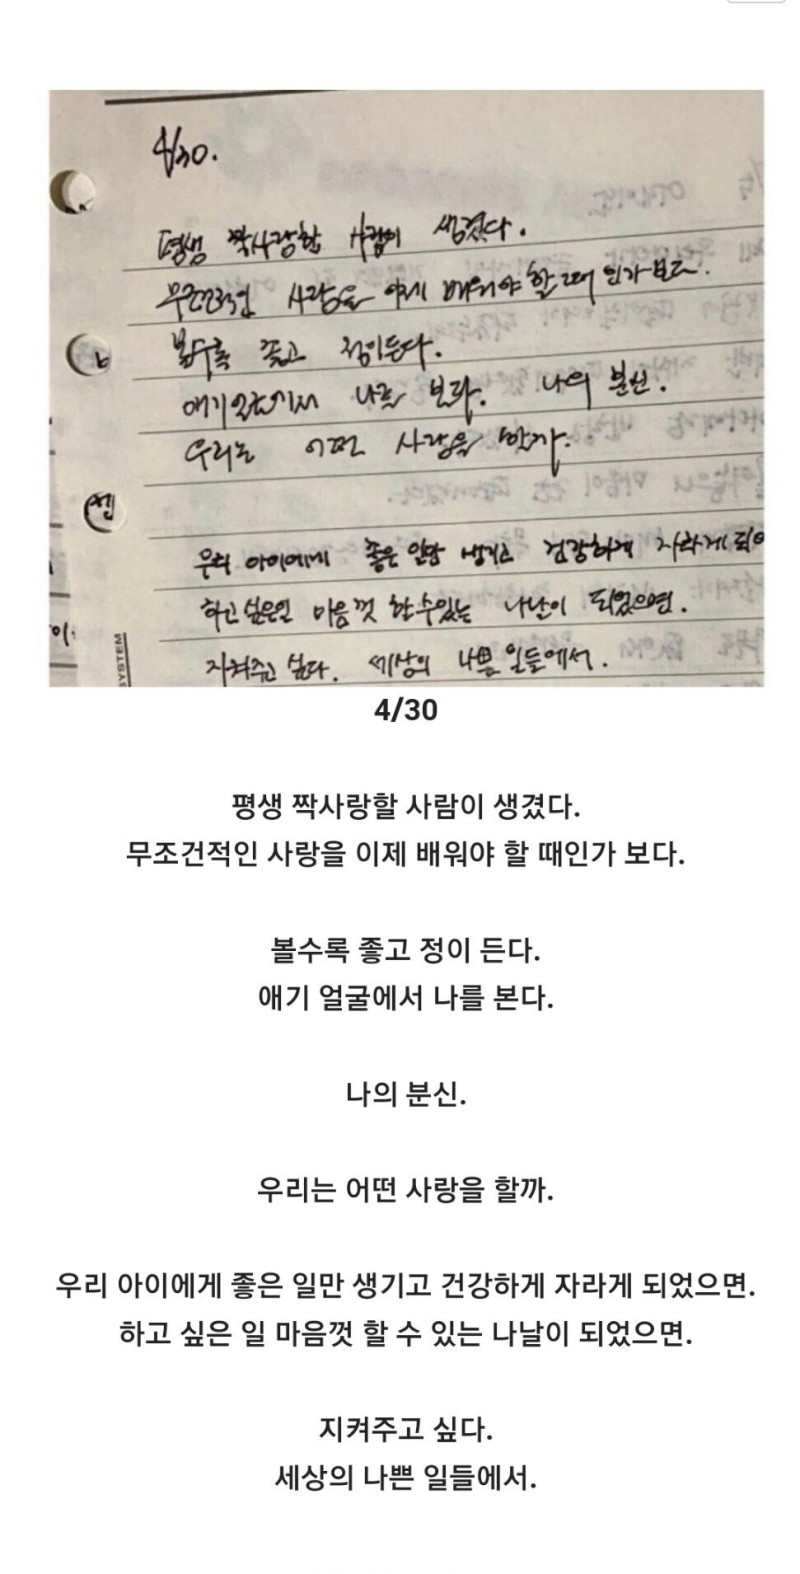 4/30.
평생 짝사랑할 사람이 생겼다.
무조건적인 사랑을 이제 배워야 할 때인가 보다.
볼수록 좋고 정이든다.
애기 얼굴에서 나를 본다. 나의 분신.
우리는 어떤 사랑을 할까.
우리 아이에게 좋은 일만 생기고 건강하게 자라게 되어
하고 싶은일 마음껏 할 수 있는 나날이 되었으면.
지켜주고 싶다. 세상의 나쁜 일들에서.
SYSTEM
4/30
평생 짝사랑할 사람이 생겼다.
무조건적인 사랑을 이제 배워야 할 때인가 보다.
볼수록 좋고 정이 든다.
애기 얼굴에서 나를 본다.
나의 분신.
우리는 어떤 사랑을 할까.
우리 아이에게 좋은 일만 생기고 건강하게 자라게 되었으면.
하고 싶은 일 마음껏 할 수 있는 나날이 되었으면.
지켜주고 싶다.
세상의 나쁜 일들에서.